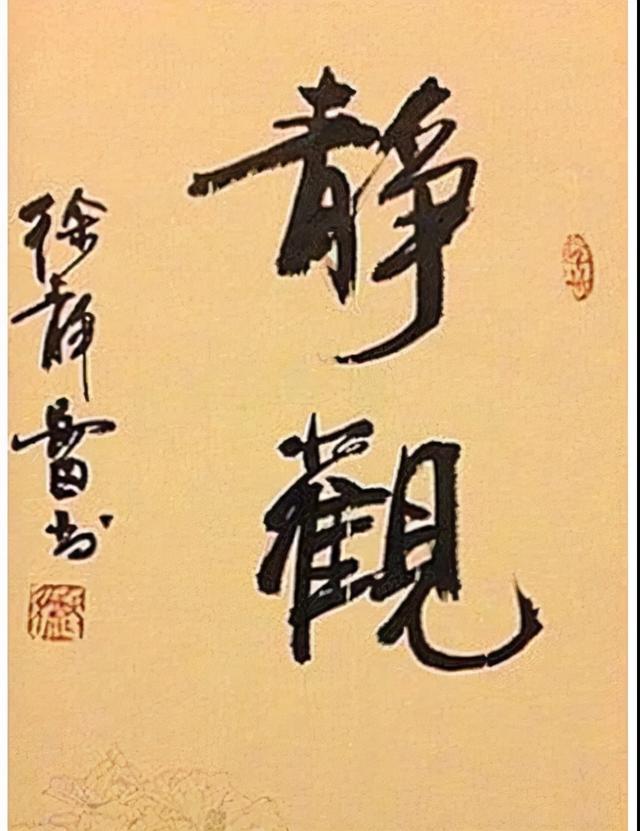 靜觀
徐靜蕾书